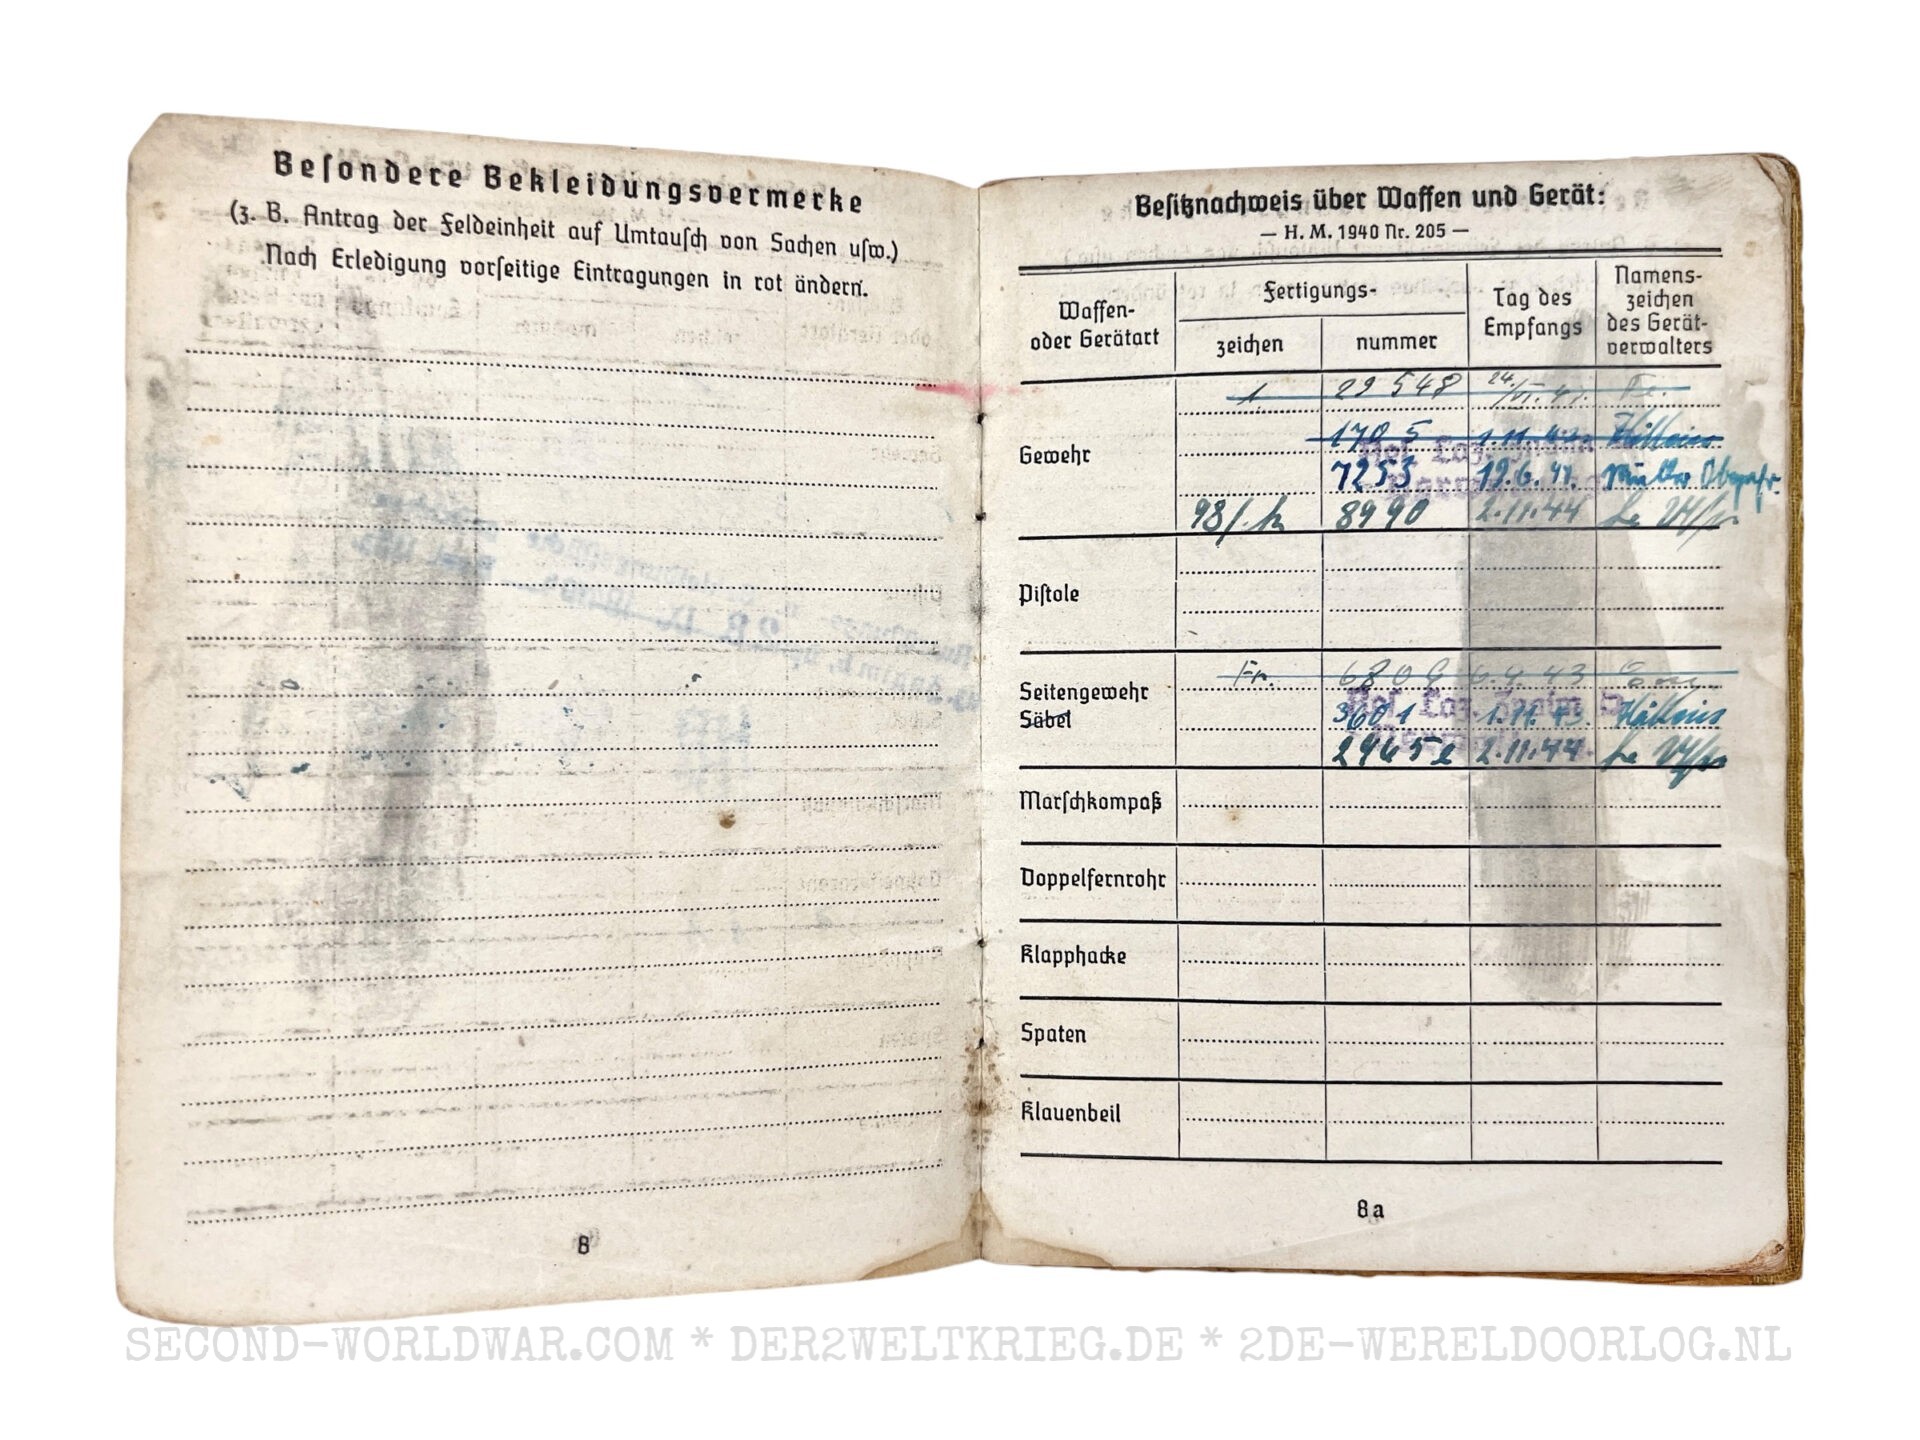 Besondere Bekleidungsvermerke
(z. B. Antrag der Feldeinheit auf Umtausch von Sachen usw.)
Nach Erledigung vorseitige Eintragungen in rot ändern.
8
Besitznachweis über Waffen und Gerät:
— H. M. 1940 Nr. 205 —
Waffen- oder Gerätart Fertigungs- zeichen nummer Tag des Empfangs Namens- zeichen des Gerät- verwalters
Gewehr
1. 29548
1705 1.11.43
7253 19.6.44.
98/. 8990 2.11.44
Pistole
Seitengewehr
Säbel
Fr. 6.4.43
3601 1.11.43.
2.11.44.
Marschkompaß
Doppelfernrohr
Klapphacke
Spaten
Klauenbeil
8a
SECOND-WORLDWAR.COM * DER2WELTKRIEG.DE * 2DE-WERELDOORLOG.NL